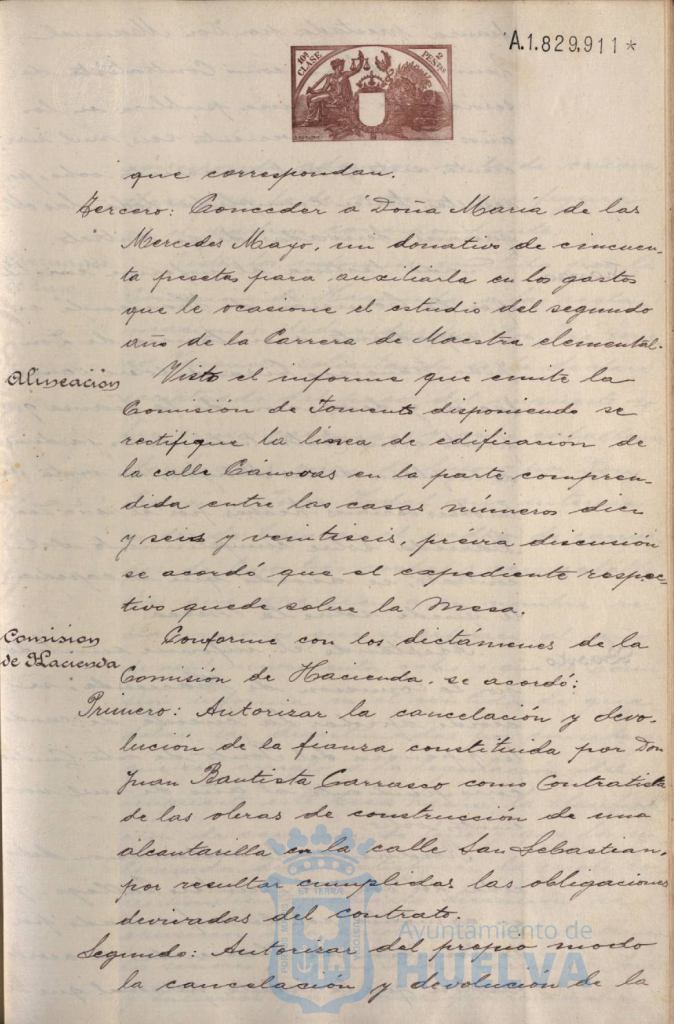 A.1.829.911*
10ª CLASE
2 PESETAS
que correspondan.
Tercero: Conceder á Doña María de las
Mercedes Mayo, un donativo de cincuen-
ta pesetas para auxiliarla en los gastos
que le ocasione el estudio del segundo
año de la Carrera de Maestra elemental.
Alineación
Visto el informe que emite la
Comisión de Fomento disponiendo se
rectifique la línea de edificasión de
la calle Cánovas en la parte compren-
dida entre las casas números diez
y seis y veintiseis, prévia discusión
se acordó que el expediente respec-
tivo quede sobre la Mesa.
Comision
de Hacienda
Conforme con los dictámenes de la
Comisión de Hacienda, se acordó:
Primero: Autorizar la cancelación y devo-
lución de la fianza constituida por Don
Juan Bautista Carrasco como Contratista
de las obras de construcción de una
alcantarilla en la calle San Sebastian,
por resultar cumplidas las obligaciones
derivadas del contrato.
Segundo: Autorizar del propio modo
la cancelación y devolución de la
Ayuntamiento de
HUELVA